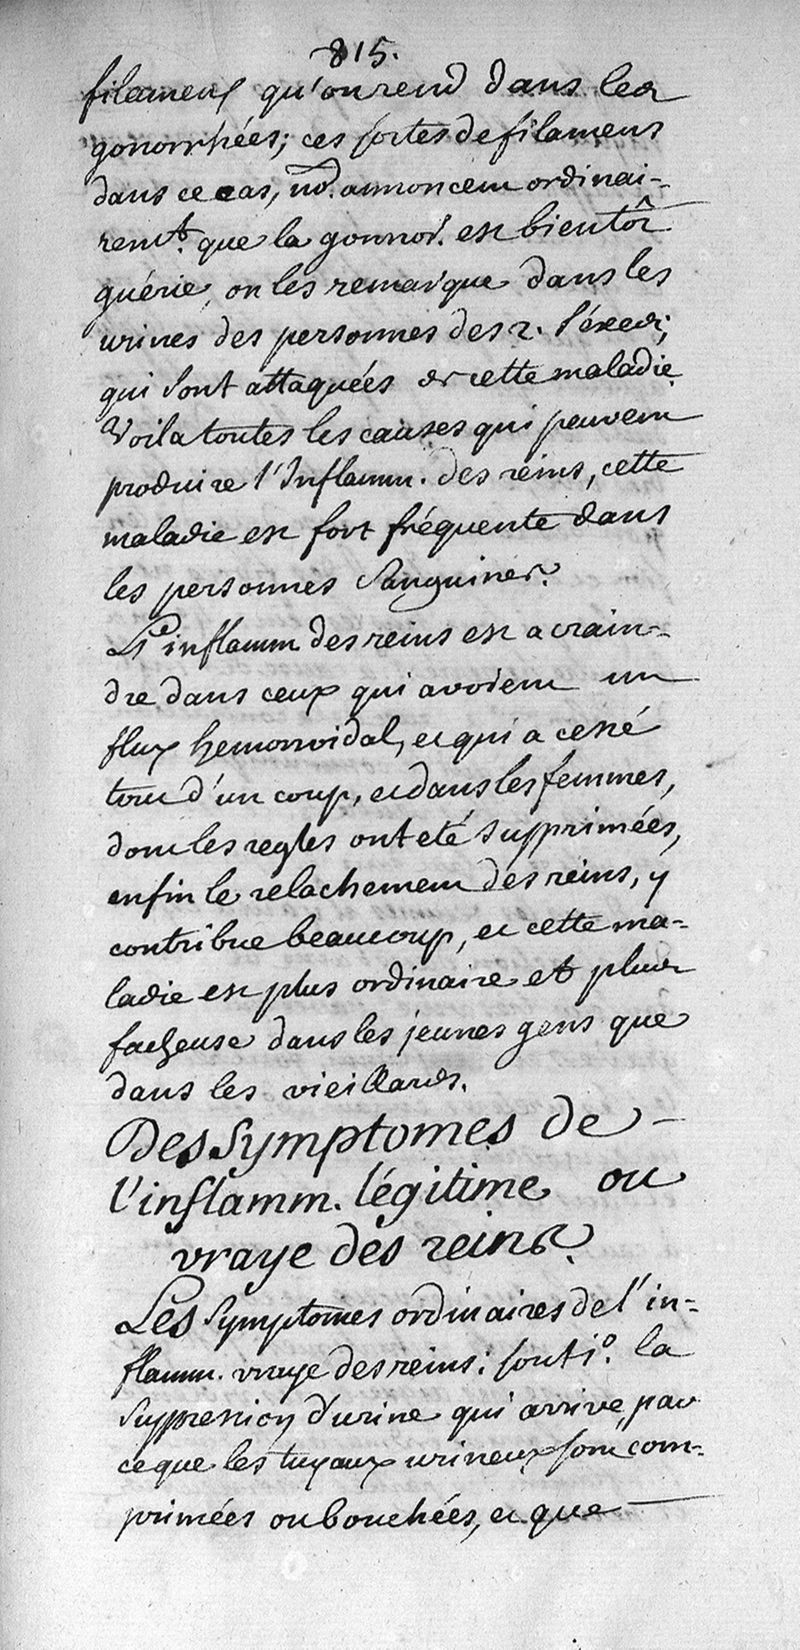 815.
filamens qu'on rend dans les
gonorrhées; ces sortes de filamens
dans ce cas, nō. annoncent ordinai-
remt. que la gonnor. est bientôt
guérie, on les remarque dans les
urines des personnes des 2. séxes;
qui sont attaquées de cette maladie.
Voila toutes les causes qui peuvent
produire l'Inflamm. des reins, cette
maladie est fort fréquente dans
les personnes Sanguines.
L'inflamm des reins est a crain-
dre dans ceux qui avoient un
flux hemorroidal, et qui a cessé
tout d'un coup, et dans les femmes,
dont les regles ont eté supprimées,
enfin le relachement des reins, y
contribue beaucoup, et cette ma-
ladie est plus ordinaire et plus
facheuse dans les jeunes gens que
dans les vieillards.
Des Symptomes de
l'inflamm. légitime ou
vraye des reins.
Les Symptomes ordinaires de l'in-
flamm. vraye des reins: sont 1°. la
suppression d'urine qui arrive, par
ce que les tuyaux urineux sont com-
primées ou bouchées, et que